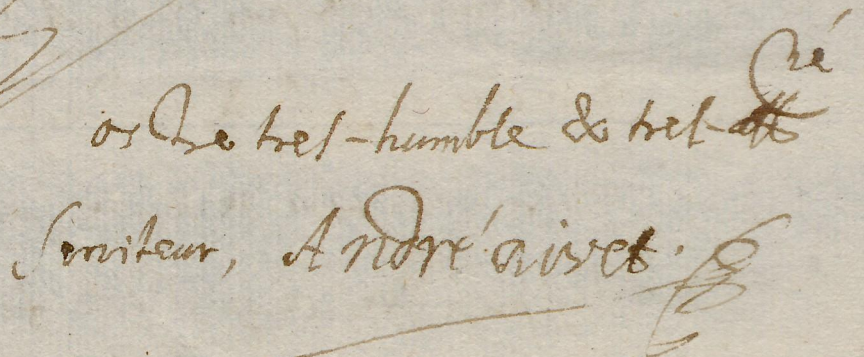 vostre tres-humble & tres-affné
Serviteur, André rivet.